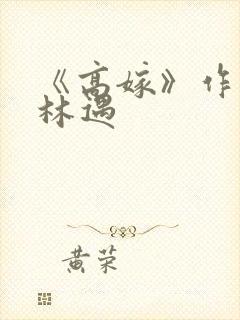 《高嫁》作
林遇
黄荣